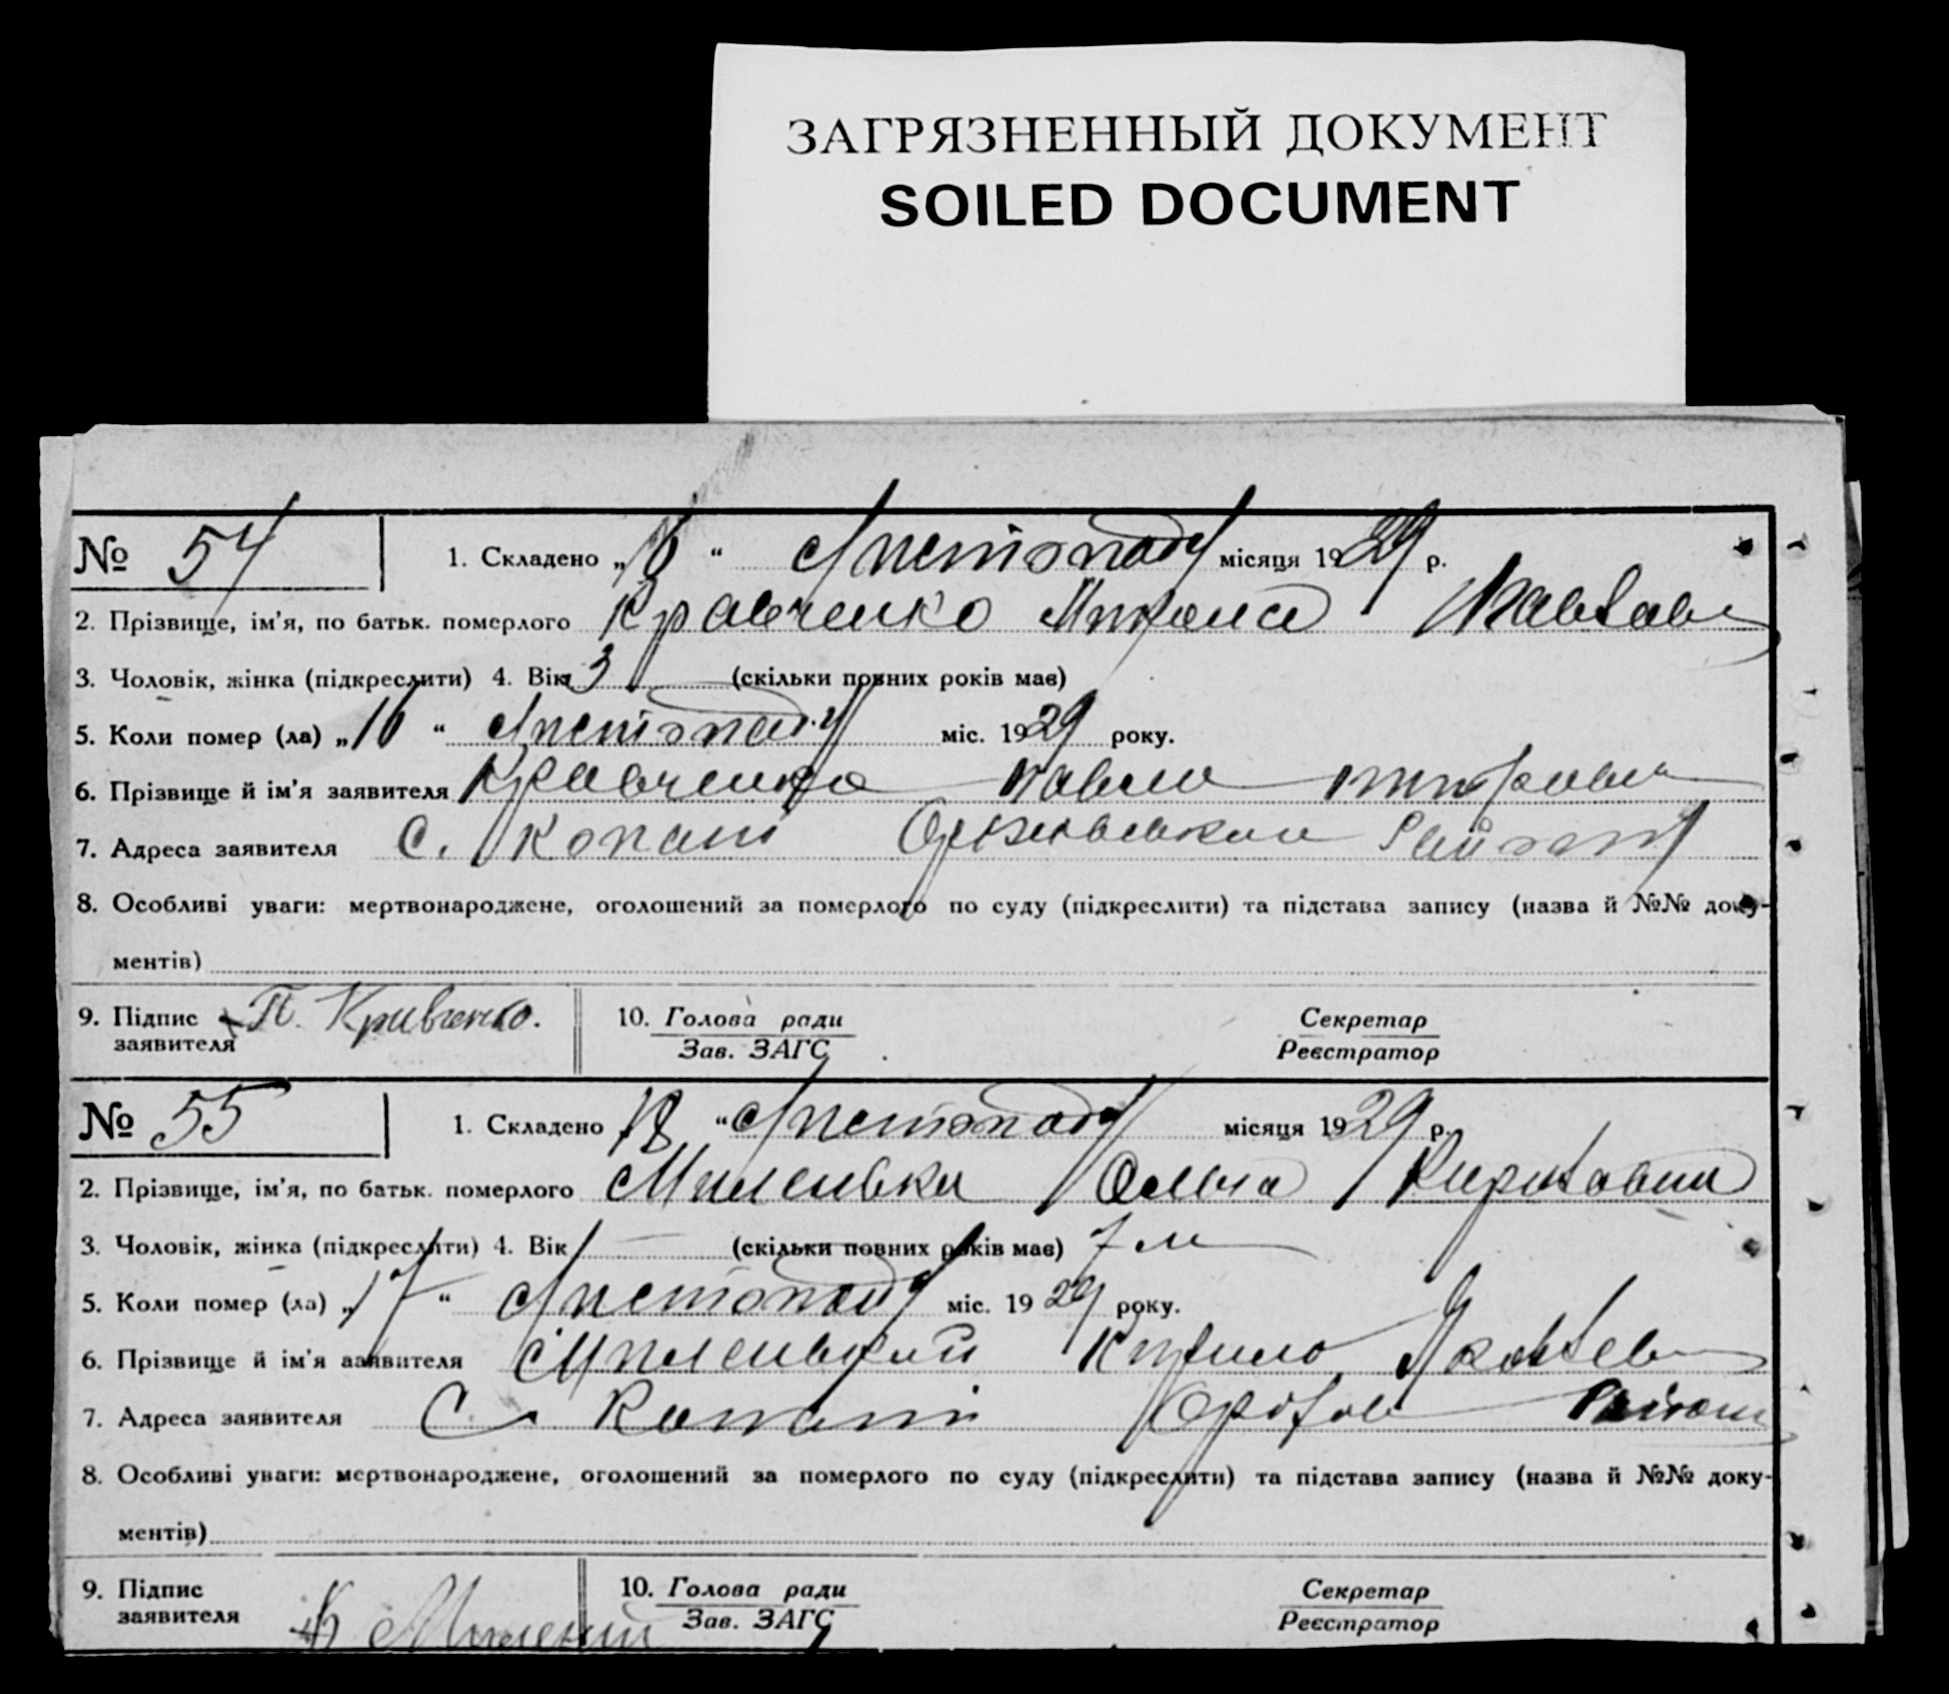 ЗАГРЯЗНЕННЫЙ ДОКУМЕНТ
SOILED DOCUMENT
№ 54 1. Складено „16“ Листопаду місяця 1929 р.
2. Прізвище, ім'я, по батьк. померлого Кравченко
3. Чоловік, жінка (підкреслити) 4. Вік 3 (скільки повних років має)
5. Коли помер (ла) „16“ Листопаду міс. 1929 року.
6. Прізвище й ім'я заявителя Кравченко Павло
7. Адреса заявителя с. Копані Оріхівський Району
8. Особливі уваги: мертвонароджене, оголошений за померлого по суду (підкреслити) та підстава запису (назва й №№ доку-
ментів)
9. Підпис заявителя П. Кривченко. 10. Голова ради Секретар
Зав. ЗАГС Реєстратор
№ 55 1. Складено 18 “ Листопаду місяця 1929 р.
2. Прізвище, ім'я, по батьк. померлого Миленька Ольга
3. Чоловік, жінка (підкреслити) 4. Вік — (скільки повних років має) 7 м
5. Коли помер (ла) „17“ Листопаду міс. 1929 року.
6. Прізвище й ім'я заявителя Миленький Кирило Яковлев
7. Адреса заявителя С. Копані Оріхов Району
8. Особливі уваги: мертвонароджене, оголошений за померлого по суду (підкреслити) та підстава запису (назва й №№ доку-
ментів)
9. Підпис заявителя 10. Голова ради Секретар
Зав. ЗАГС Реєстратор